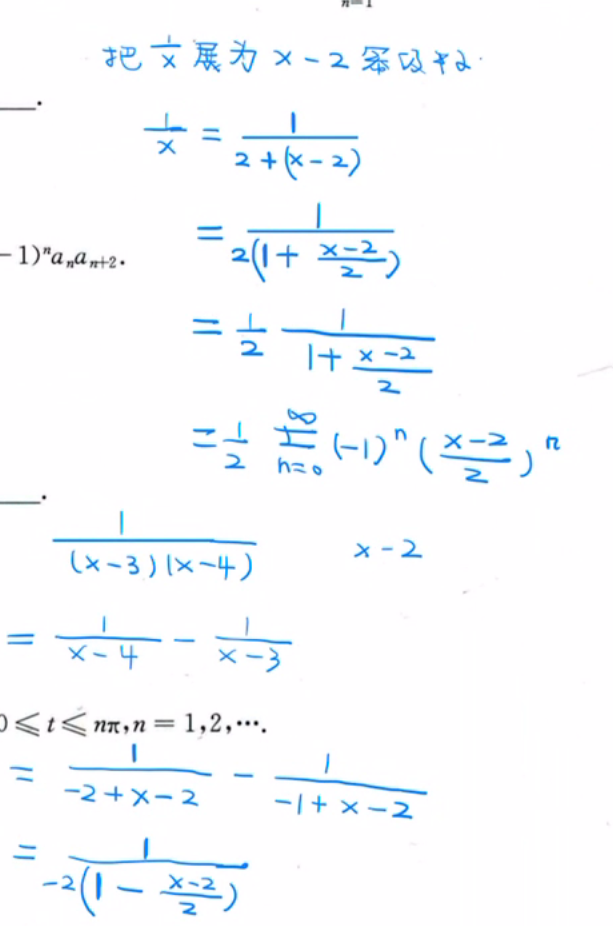 n=1
把 1/x 展为 x-2 幂级数.
____.
1/x = 1/(2+(x-2))
= 1/(2(1+(x-2)/2))
-1)ⁿaₙaₙ₊₂.
= 1/2 1/(1+(x-2)/2)
= 1/2 ∑_{n=0}^{∞} (-1)ⁿ((x-2)/2)ⁿ
____.
1/((x-3)(x-4)) x-2
= 1/(x-4) - 1/(x-3)
0≤t≤nπ,n=1,2,⋯.
= 1/(-2+x-2) - 1/(-1+x-2)
= 1/(-2(1-(x-2)/2))